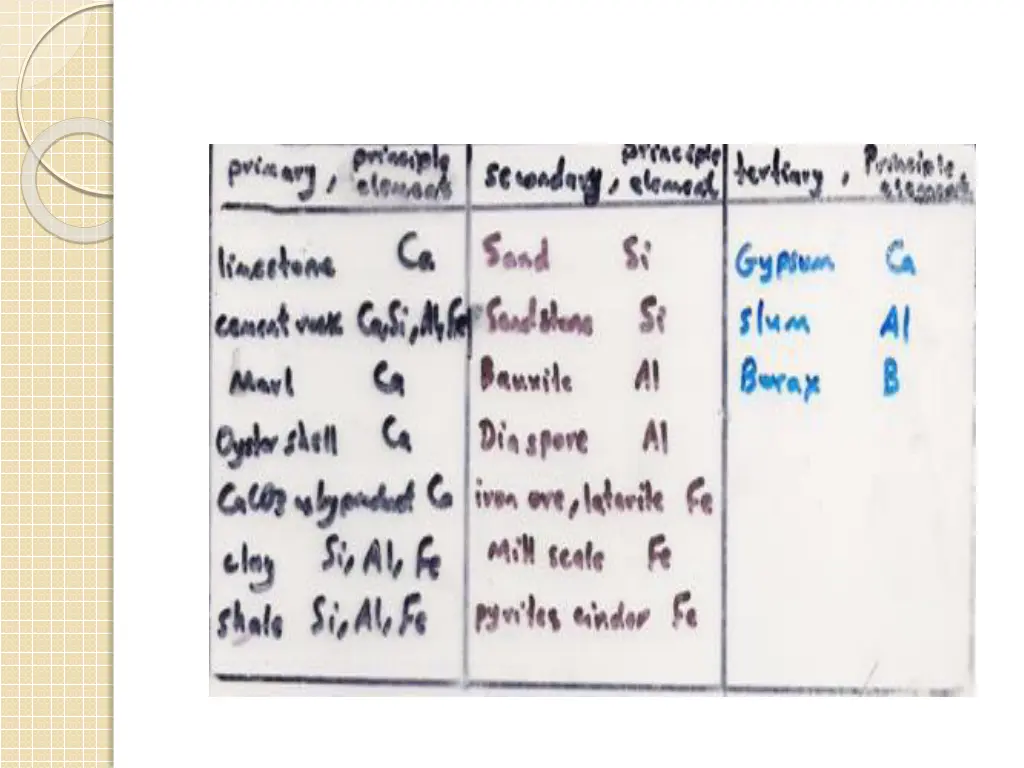 primary, principle element secondary, principle element tertiary, Principle element
limestone Ca Sand Si Gypsum Ca
cement rock Ca,Si,Al,Fe Sandstone Si slum Al
Marl Ca Bauxite Al Borax B
Oyster shell Ca Diaspore Al
CaCO3 as byproduct Ca iron ore, laterite Fe
clay Si, Al, Fe Mill scale Fe
shale Si, Al, Fe pyrites cinder Fe